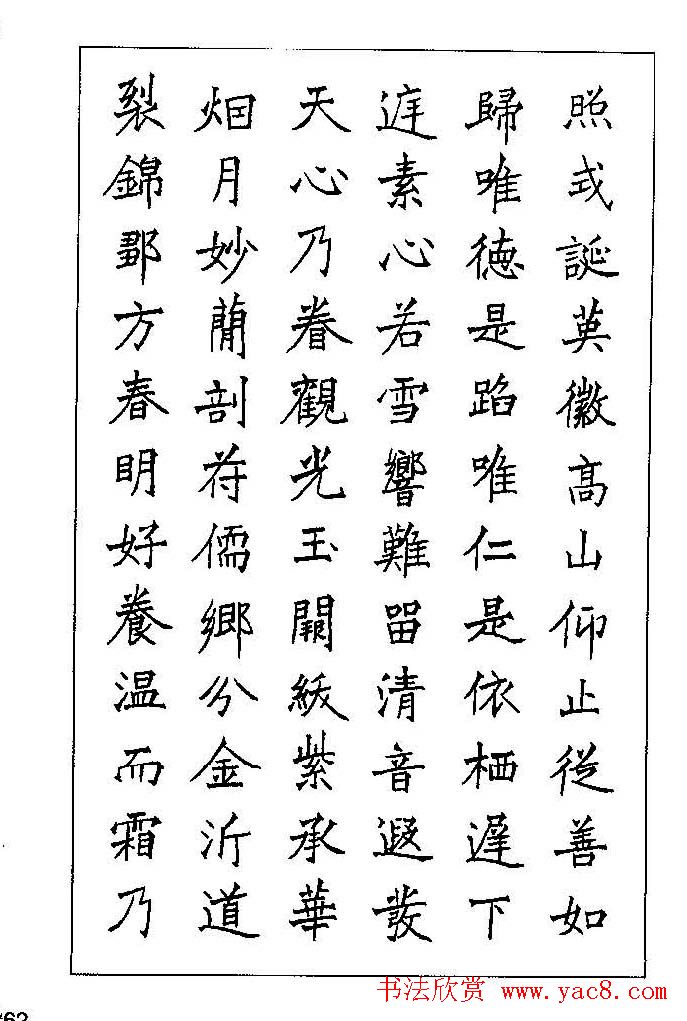 照式誕英徽高山仰止從善如
歸唯德是蹈唯仁是依栖遲下
庭素心若雪響難留清音遐發
天心乃眷觀光玉闕紱紫承華
烟月妙蕳剖苻儒鄉分金沂道
裂錦鄒方春明好養温而霜乃
书法欣赏 www.yac8.com